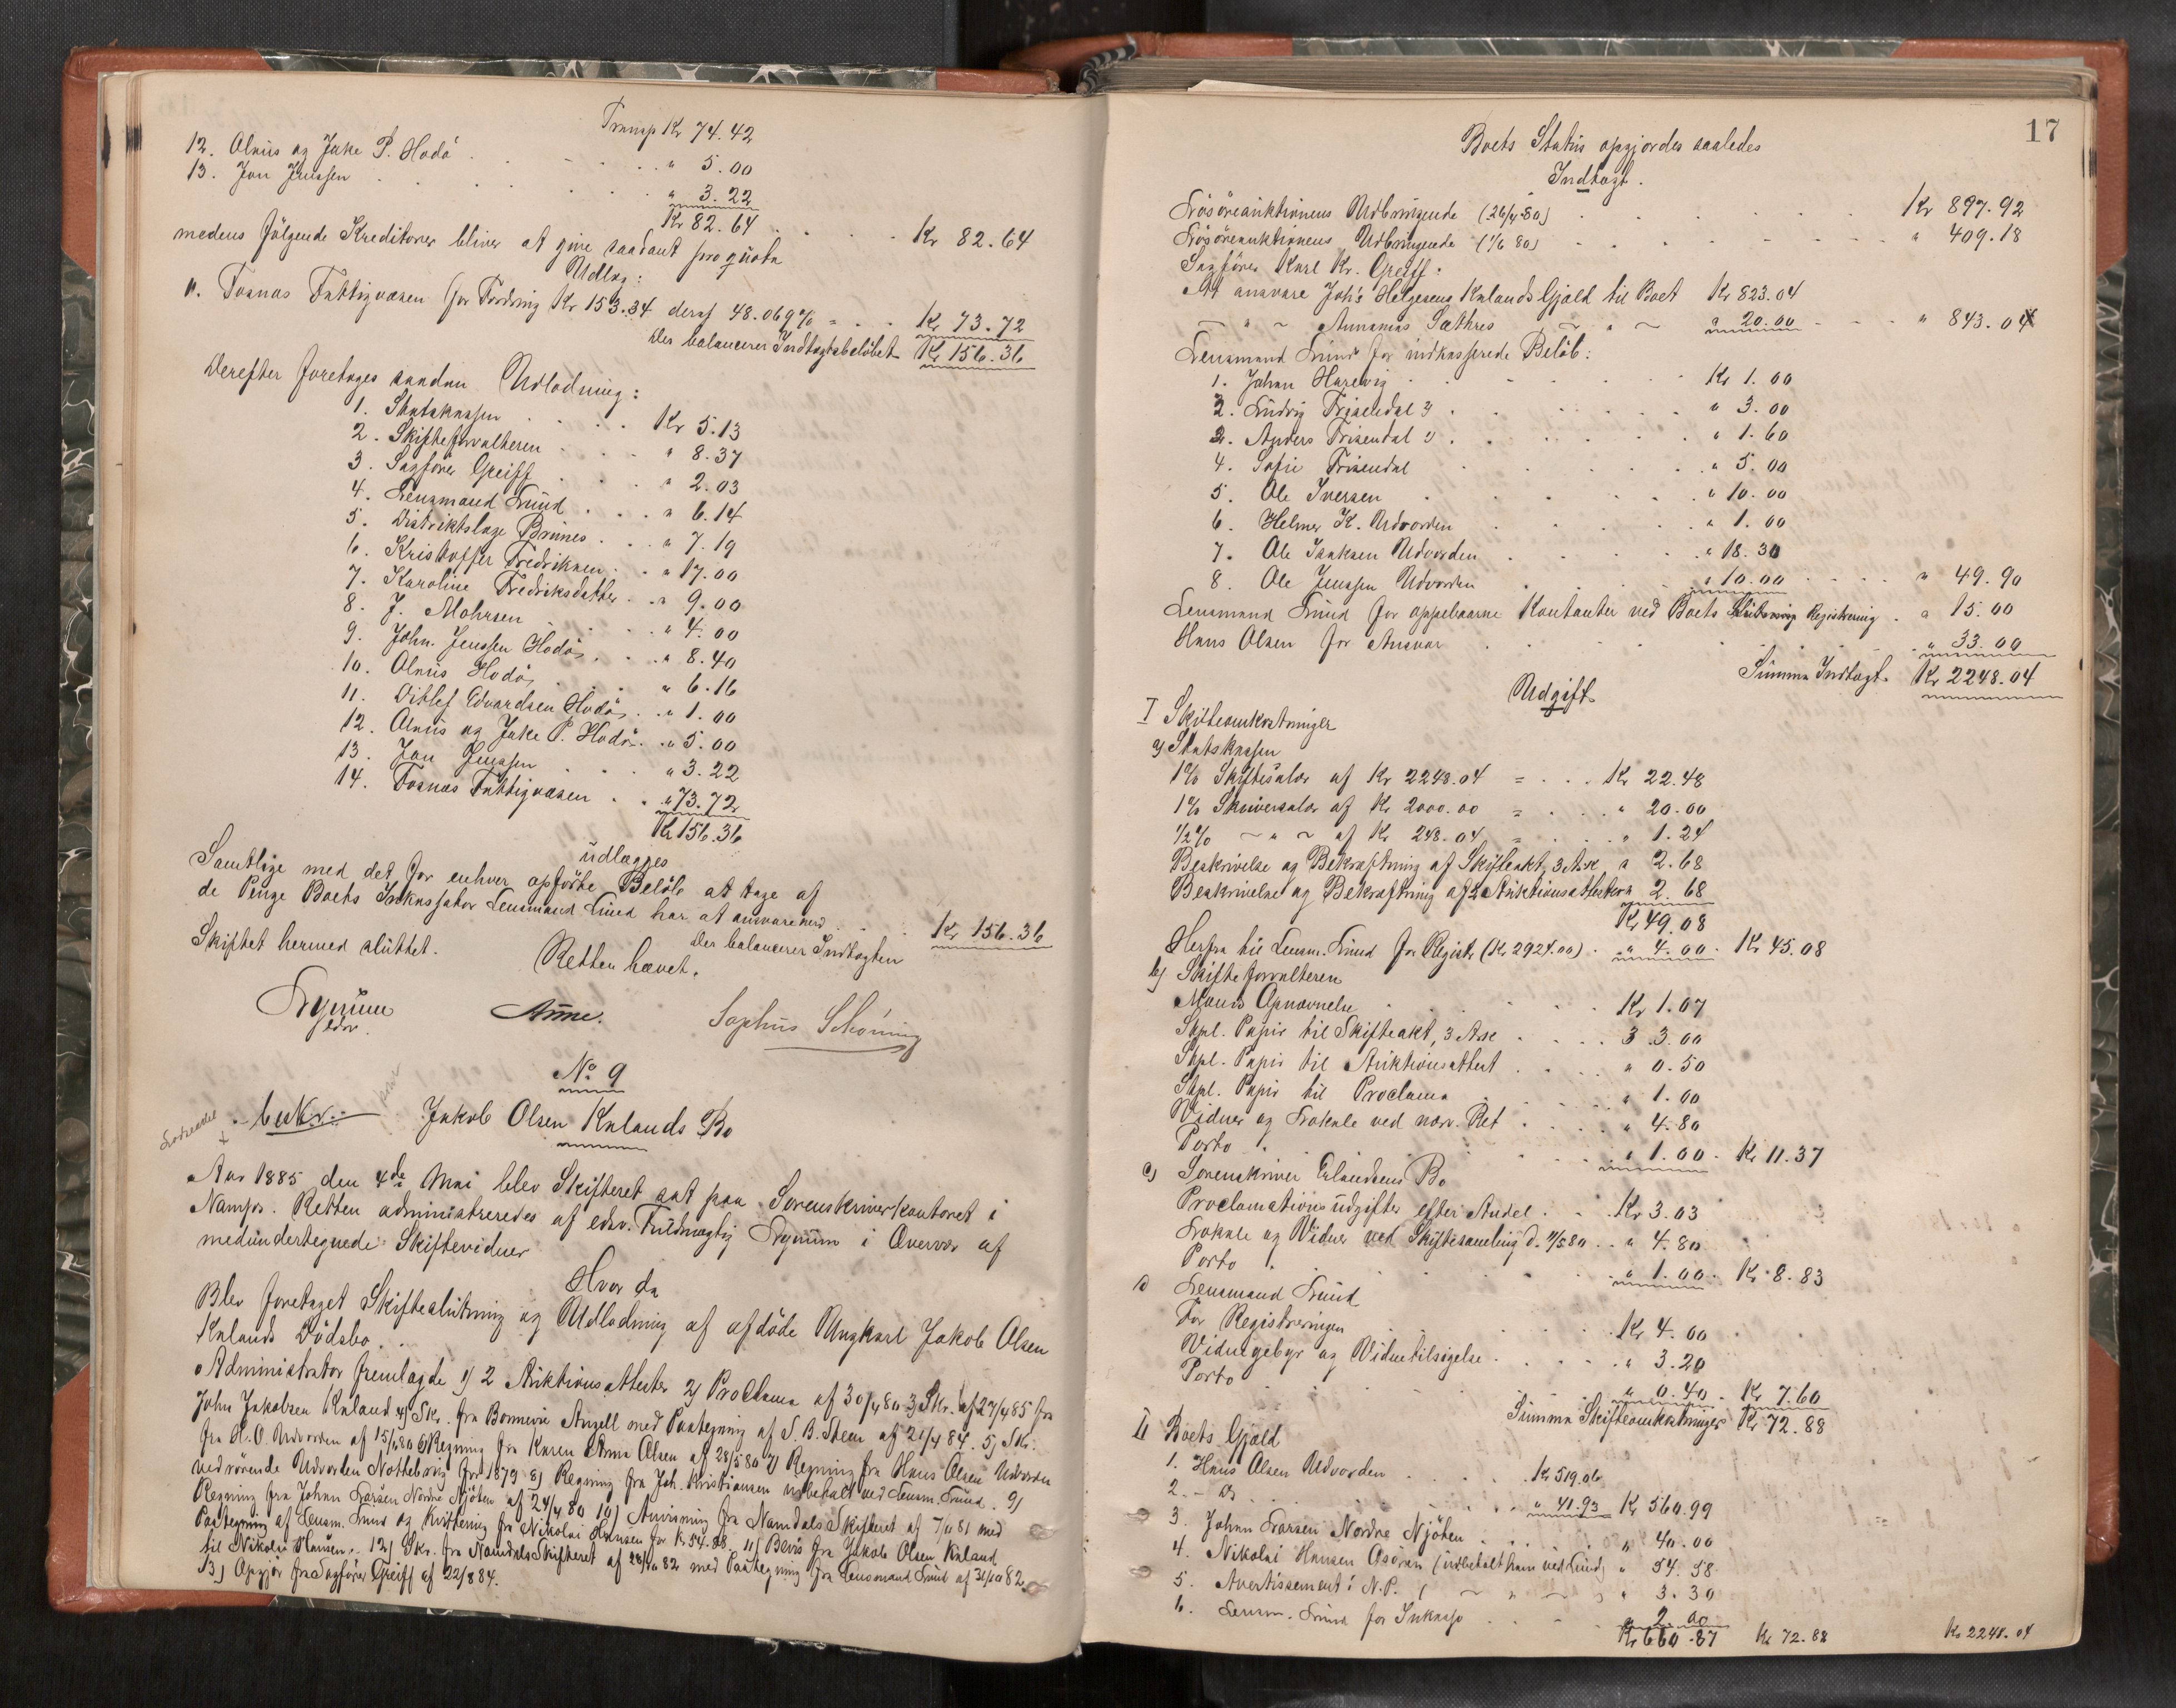 Transp Kr 74.42
12. Alnus og Jake P. Hodö . . . . " 5.00
13. Jon Jenssen . . . . " 3.22
Kr 82.64 . . . . Kr 82.64
medens fölgende Kreditorer bliver at give saadant pro quota
Udlæg:
Fosnæs Fattigvæsen for Fordring Kr 153.34 deraf 48.069% = . . Kr 73.72
der balancerer Indtægtsbelöbet Kr 156.36
Derefter foretoges saadan Udlodning:
1. Statskassen . . . . Kr 5.13
2. Skifteforvalteren . . . " 8.37
3. Sagförer Greiff . . . " 2.03
4. Lensmand Lund . . . " 6.14
5. Distriktslæge Brunes . . . " 7.19
6. Kristoffer Fredriksen . . " 17.00
7. Karoline Fredriksdatter . . " 9.00
8. J. Mohrsen . . . . " 4.00
9. John. Jenssen Hodö . . . " 8.40
10. Alnus Hodö . . . . " 6.16
11. Ditlef Edvardsen Hodö . . " 1.00
12. Alnus og Jake P. Hodö . . " 5.00
13. Jon Jenssen . . . " 3.22
14. Fosnæs Fattigvæsen . . " 73.72
Kr 156.36
udlægges
Samtlige med det for enhver opförte Belöb at tage af
de Penge Boets Inkassator Lensmand Lund har at ansvare med . . . Kr 156.36
der balancerer Indtægten
Skiftet hermed sluttet.
Retten hævet.
Lynum
edsv.
Sophus Schöning
No 9
beskr. Jakob Olsen Kalands Bo
Aar 1885 den 4de Mai blev Skifteret sat paa Sorenskriverkontoret i
Namsos. Retten administreredes af edsv. Fuldmægtig Lynum i Overvær af
medundertegnede Skiftevidner
Hvor da
Blev foretaget Skifteslutning og Udlodning af afdöde Ungkarl Jakob Olsen
Kalands Dödsbo.
Administrator fremlagde 1) 2 Auktionsattester 2) Proclama af 30/4 80 3) Skr. af 27/4 85 fra
John Jakobsen Kaland 4) Skr. fra Bonnevie Angell med Paategning af S. B. Steen af 21/4 84. 5) Skr.
fra H. O. Udvorden af 15/6 80 6) Regning fra Karen Anna Olsen af 28/5 80 7) Regning fra Hans Olsen Udvorden
vedrörende Udvorden Nottebrug for 1879 8) Regning fra Joh. Kristiansen indbetalt ved Lensm. Lund. 9)
Regning fra Johan Larsen Nordre Njöten af 24/4 80 10) Anvisning fra Namdals Skifteret af 7/6 81 med
Paategning af Lensm. Lund og Kvittering fra Nikolai Hansen for Kr. 54.58. 11) Bevis fra Jakob Olsen Kaland
til Nikolai Hansen. 12) Skr. fra Namdals Skifteret af 28/10 82 med Paategning fra Lensmand Lund af 31/10 82.
13) Opgjör fra Sagförer Greiff af 22/8 84.
17
Boets Status opgjordes saaledes
Indtægt.
Lösöreauktionens Udbringende (26/4 80) . . . . Kr 897.92
Lösöreauktionens Udbringende (1/6 80) . . . . " 409.18
Sagförer Karl Kr. Greiff:
At ansvare Joh's Helgesens Kalands Gjæld til Boet Kr 823.04
— " — Annanias Sæthres — " — " 20.00 . . . " 843.04
Lensmand Lund for indkasserede Belöb:
1. Johan Harevig . . . . Kr 1.00
2. Ludvig Friisendal . . . . " 3.00
3. Anders Friisendal . . . . " 1.60
4. Sofie Friisendal . . . . " 5.00
5. Ole Iversen . . . . " 10.00
6. Helmer K. Udvorden . . . . " 1.00
7. Ole Isaksen Udvorden . . . . " 18.30
8. Ole Jenssen Udvorden . . . . " 10.00 . . . . " 49.90
Lensmand Lund for oppebaarne Kontanter ved Boets Registrering . " 15.00
Hans Olsen for Ansvar . . . . " 33.00
Summa Indtægt. Kr 2248.04
Udgift
I Skifteomkostninger
a) Statskassen
1% Skiftesalær af Kr 2248.04 = . . . Kr 22.48
1% Skriversalær af Kr 2000.00 = . . . " 20.00
1/2% — " — af Kr 248.04 = . . . " 1.24
Beskrivelse og Bekræftning af Skifteakt, 3 Ark " 2.68
Beskrivelse og Bekræftning af 2 Auktionsattester " 2.68
Kr 49.08
Herfra til Lensm. Lund for Registr. (Kr 2924.00) . . " 4.00 . Kr 45.08
b) Skifteforvalteren
Mænds Opnævnelse . . . . Kr 1.07
Stpl. Papir til Skifteakt, 3 Ark . . . . 3.00
Stpl. Papir til Auktionsattest . . . . " 0.50
Stpl. Papir til Proclama . . . . " 1.00
Vidner og Lokale ved nærv. Ret . . . . " 4.80
Porto . . . . " 1.00 . Kr 11.37
c) Sorenskriver Erlandsens Bo
Proclamations udgifter efter Andel . . Kr 3.03
Lokale og Vidner ved Skiftesamling d. 11/5 80 . . " 4.80
Porto . . . . " 1.00 . Kr 8.83
d) Lensmand Lund
For Registreringen . . . . Kr 4.00
Vidnegebyr og Vidnetilsigelse . . . . " 3.20
Porto . . . . " 0.40 . Kr 7.60
Summa Skifteomkostninger Kr 72.88
II Boets Gjæld
1. Hans Olsen Udvorden . . . . Kr 519.06
2. — Do . . . . " 41.93 Kr 560.99
3. Johan Larsen Nordre Njöten . . . . " 40.00
4. Nikolai Hansen Asören (indbetalt ham ved Lund) " 54.58
5. Avertissement i N.P. ( — " — ) " 3.30
6. Lensm. Lund for Inkasso . . . 2.00
Kr 660.87 Kr 72.88 Kr 2248.04